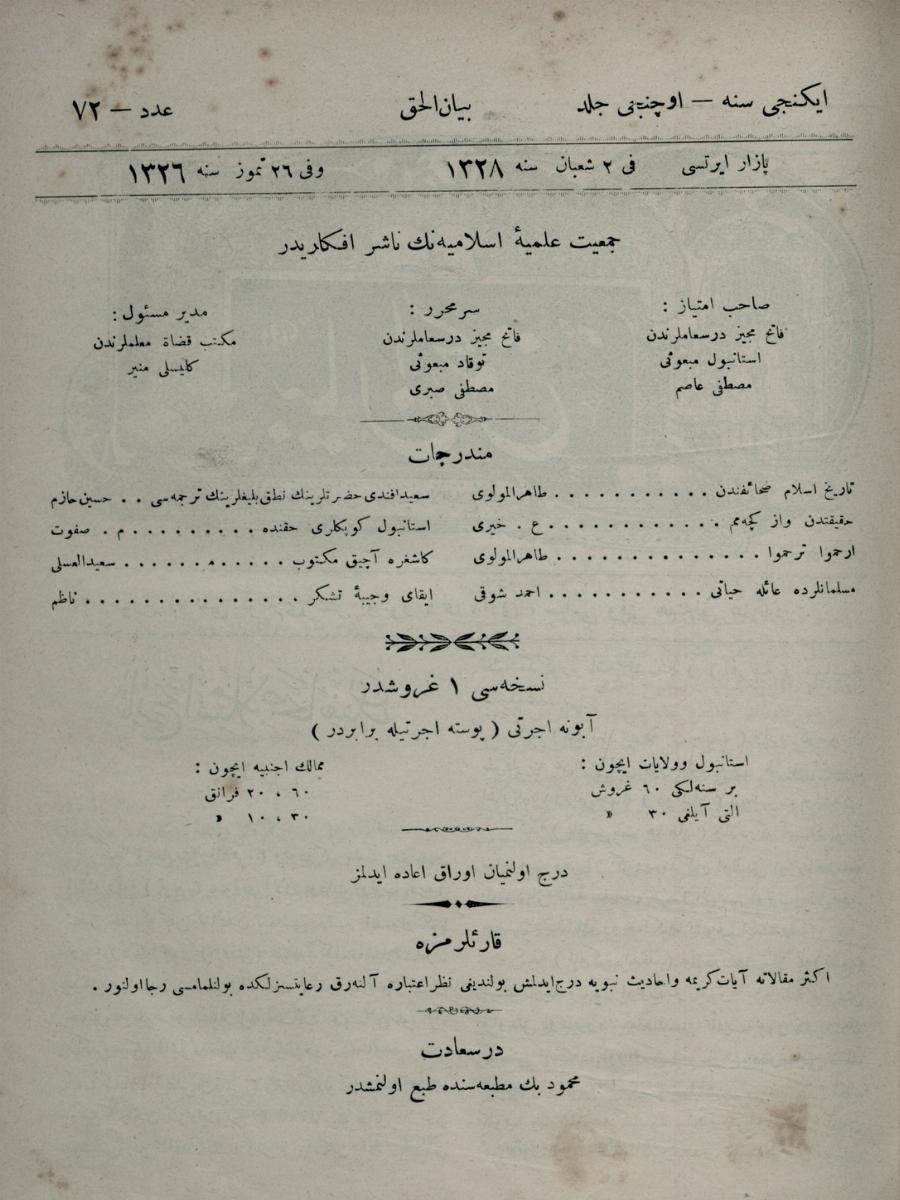 ایكنجی سنه — اوچنجی جلد
بیان‌الحق
عدد — ٧٢
پازار ایرتسی فی ٢ شعبان سنه ١٣٢٨
وفی ٢٦ تموز سنه ١٣٢٦
جمعیت علمیهٔ اسلامیه‌نك ناشر افكاریدر
صاحب امتیاز :
فاتح مجیز درسعاملرندن
استانبول مبعوثی
مصطفی عاصم
سرمحرر :
فاتح مجیز درسعاملرندن
توقاد مبعوثی
مصطفی صبری
مدیر مسئول :
مكتب قضاة معلملرندن
كلیسلی منیر
مندرجات
تاریخ اسلام صحائفندن . . . . . . . . . . . طاهرالمولوی
حقیقتدن واز كچه‌مم . . . . . . . . . . . . ع . خیری
ارحموا ترحموا . . . . . . . . . . . . . . طاهرالمولوی
مسلمانلرده عائله حیاتی . . . . . . . . . . . احمد شوقی
سعیدافندی حضرتلرینك نطق بلیغلرینك ترجمه‌سی . . حسین حازم
استانبول كوپكلری حقنده . . . . . . . . . م . صفوت
كاشغره آچیق مكتوب . . . . . . . . . . سعیدالعسلی
ایفای وجیبهٔ تشكر . . . . . . . . . . . . . . . ناظم
نسخه‌سی ١ غروشدر
آبونه اجرتی ( پوسته اجرتیله برابردر )
استانبول وولایات ایچون :
بر سنه‌لكی ٦٠ غروش
التی آیلغی ٣٠ »
ممالك اجنبیه ایچون :
٦٠ ، ٢٠ فرانق
٣٠ ، ١٠ »
درج اولنمیان اوراق اعاده ایدلمز
قارئلرمزه
اكثر مقالاته آیات كریمه واحادیث نبویه درج ایدلمش بولندیغی نظراعتباره آلنه‌رق رعایتسزلكده بولنلمامسی رجا اولنور .
درسعادت
محمود بك مطبعه‌سنده طبع اولنمشدر